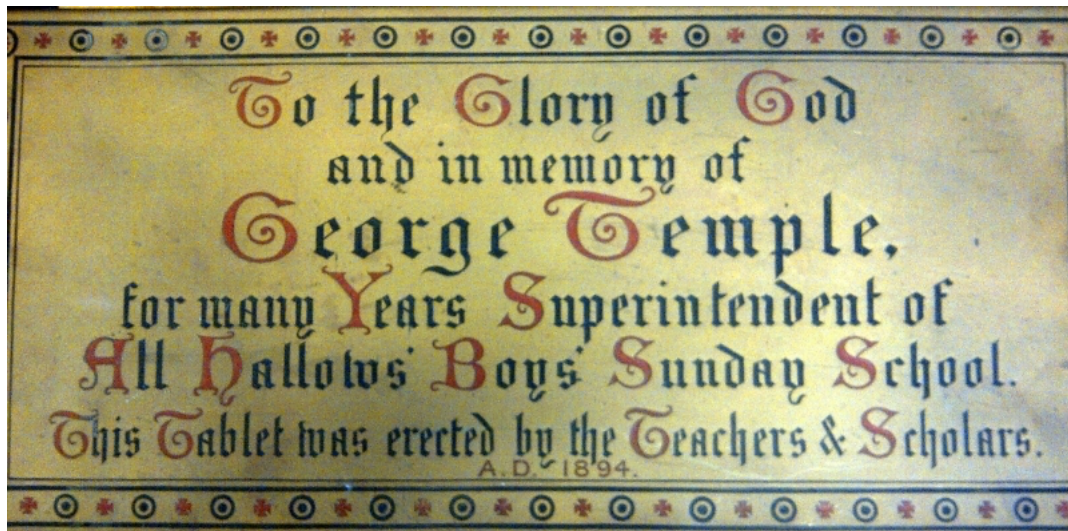 To the Glory of God
and in memory of
George Temple,
for many Years Superintendent of
All Hallows' Boys' Sunday School.
This Tablet was erected by the Teachers & Scholars.
A.D. 1894.